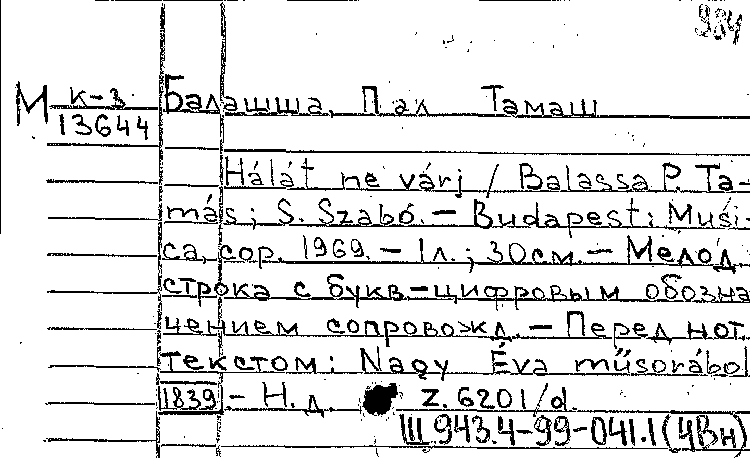 984
М к-3
13644
Балашша, Пал Тамаш
Hálát ne várj / Balassa P. Ta-
más; S. Szabó. — Budapest: Musi-
ca, cop. 1969. — 1 л.; 30 см. — Мелод.
строка с букв.-цифровым обозна
чением сопровожд. — Перед нот.
текстом: Nagy Éva műsorából
1839 - Н. д. Z. 6201/d.
III 943.4-99-041.1 (4Вн)